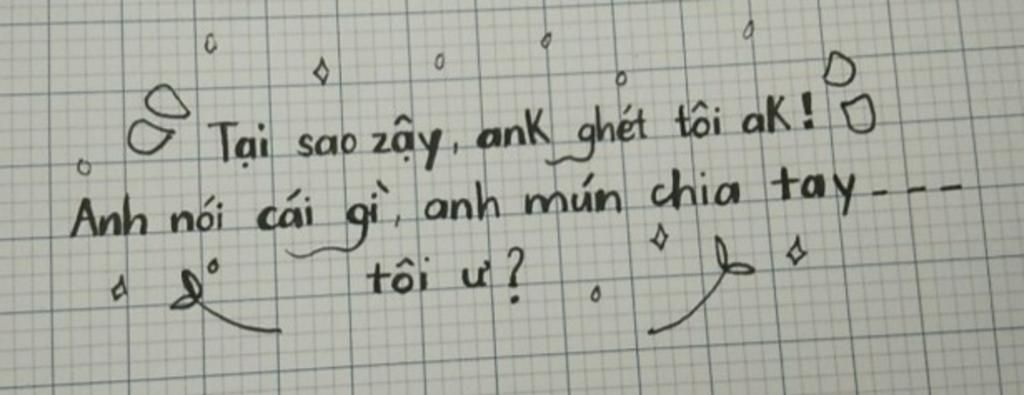 Tại sao zậy, ank ghét tôi ak!
Anh nói cái gì, anh mún chia tay---
tôi ư?